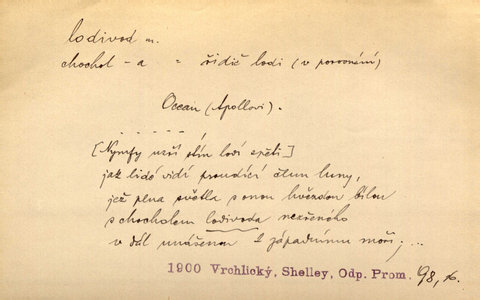 lodivod m.
chochol -a = řidič lodi (v porovnání)
Ocean (Apollovi).
. . . . . .
[Nymfy uzří stín lodí spěti]
jak lidé vidí proudící člun luny,
jejž plna světla s onou hvězdou bílou
s chocholem lodivoda nezřeného
v dál unášenou k západnímu moři; ...
1900 Vrchlický, Shelley, Odp. Prom. 98,